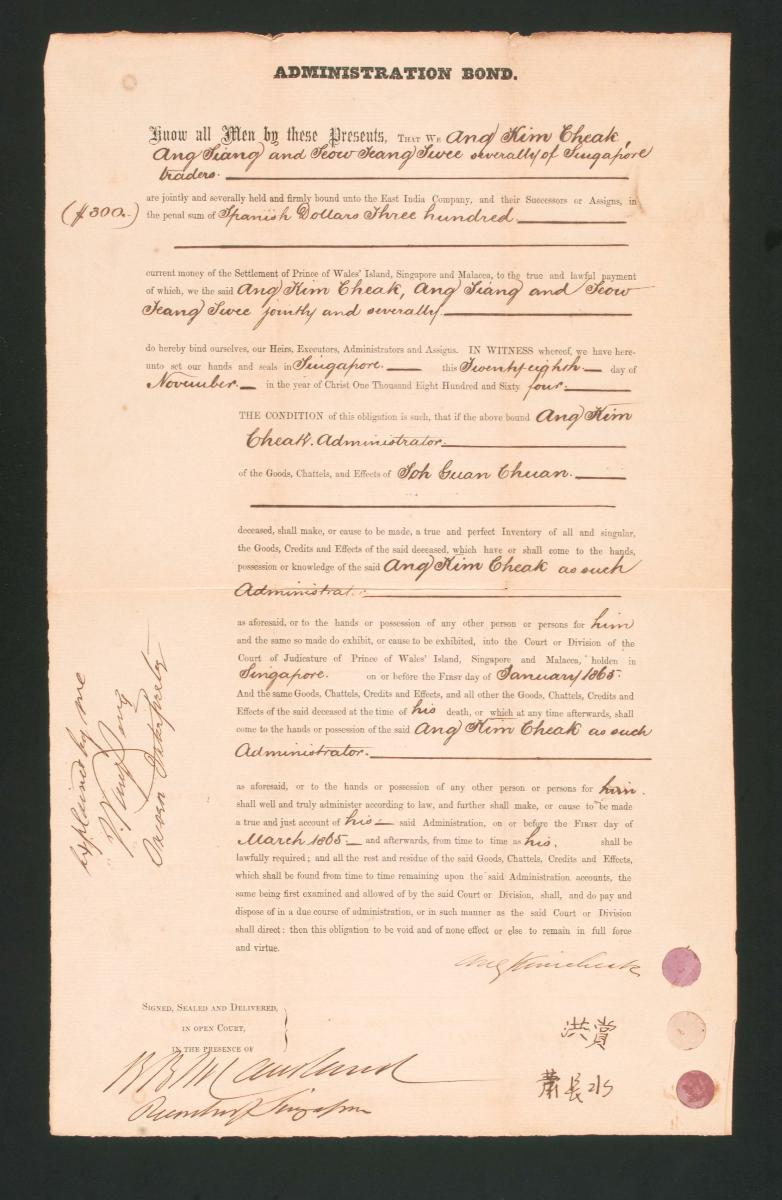 ADMINISTRATION BOND.
Know all Men by these Presents, THAT WE Ang Kim Cheak,
Ang Siang and Seow Teang Swee severally of Singapore
traders.
are jointly and severally held and firmly bound unto the East India Company, and their Successors or Assigns, in
($300.-) the penal sum of Spanish Dollars Three hundred
current money of the Settlement of Prince of Wales' Island, Singapore and Malacca, to the true and lawful payment
of which, we the said Ang Kim Cheak, Ang Siang and Seow
Teang Swee jointly and severally.
do hereby bind ourselves, our Heirs, Executors, Administrators and Assigns. IN WITNESS whereof, we have here-
unto set our hands and seals in Singapore. this Twenty eighth day of
November. in the year of Christ One Thousand Eight Hundred and Sixty four.
THE CONDITION of this obligation is such, that if the above bound Ang Kim
Cheak. Administrator.
of the Goods, Chattels, and Effects of Soh Guan Chuan.
deceased, shall make, or cause to be made, a true and perfect Inventory of all and singular,
the Goods, Credits and Effects of the said deceased, which have or shall come to the hands,
possession or knowledge of the said Ang Kim Cheak as such
Administrator.
as aforesaid, or to the hands or possession of any other person or persons for him
and the same so made do exhibit, or cause to be exhibited, into the Court or Division of the
Court of Judicature of Prince of Wales' Island, Singapore and Malacca, holden in
Singapore. on or before the FIRST day of January 1865.
And the same Goods, Chattels, Credits and Effects, and all other the Goods, Chattels, Credits and
Effects of the said deceased at the time of his death, or which at any time afterwards, shall
come to the hands or possession of the said Ang Kim Cheak as such
Administrator.
as aforesaid, or to the hands or possession of any other person or persons for him.
shall well and truly administer according to law, and further shall make, or cause to be made
a true and just account of his said Administration, on or before the FIRST day of
March 1865. and afterwards, from time to time as his. shall be
lawfully required; and all the rest and residue of the said Goods, Chattels, Credits and Effects,
which shall be found from time to time remaining upon the said Administration accounts, the
same being first examined and allowed of by the said Court or Division, shall, and do pay and
dispose of in a due course of administration, or in such manner as the said Court or Division
shall direct: then this obligation to be void and of none effect or else to remain in full force
and virtue.
Ang Kim Cheak
SIGNED, SEALED AND DELIVERED,
IN OPEN COURT,
IN THE PRESENCE OF
洪賞
蕭長水
Singapore
explained by me
Sworn Interpreter